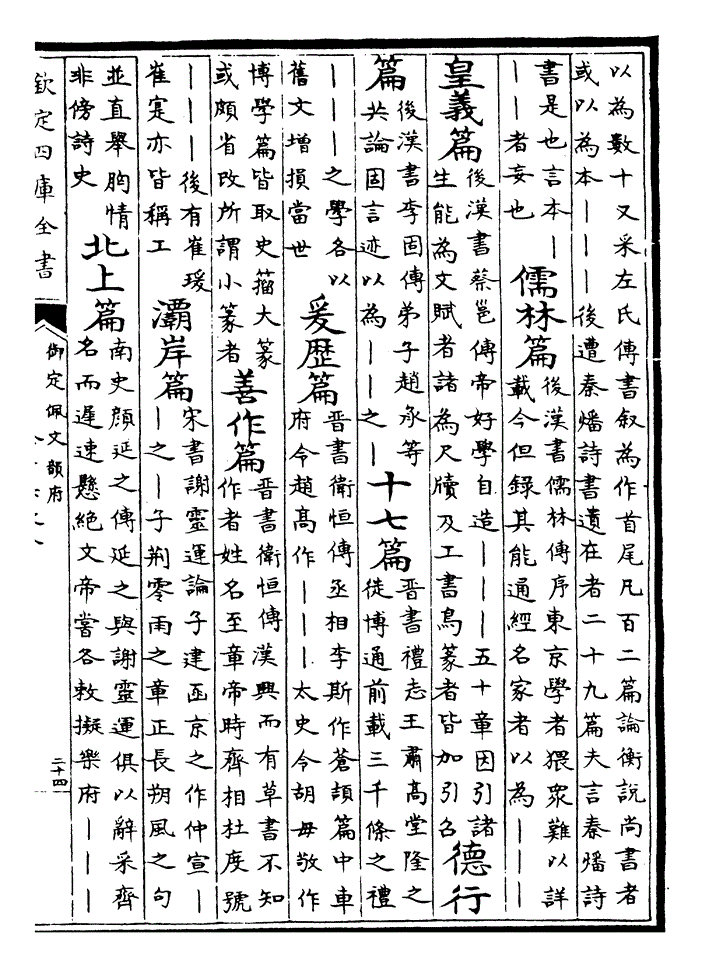 以為數十又采左氏傳書叙為作首尾凡百二篇論衡說尚書者
或以為本丨丨丨後遭秦燔詩書遺在者二十九篇夫言秦燔詩
書是也言本丨
丨丨者妄也
儒林篇
後漢書儒林傳序東京學者猥衆難以詳
載今但錄其能通經名家者以為丨丨丨
皇義篇
後漢書蔡邕傳帝好學自造丨丨丨五十章因引諸
生能為文賦者諸為尺牘及工書鳥篆者皆加引召
德行
篇
後漢書李固傳弟子趙承等
共論固言迹以為丨丨之丨
十七篇
晋書禮志王肅高堂隆之
徒博通前載三千條之禮
丨丨丨之學各以
舊文增損當世
爰歴篇
晋書衛恒傳丞相李斯作蒼頡篇中車
府令趙高作丨丨丨太史令胡毋敬作
博學篇皆取史籀大篆
或頗省改所謂小篆者
善作篇
晋書衛恒傳漢興而有草書不知
作者姓名至章帝時齊相杜度號
丨丨丨後有崔瑗
崔寔亦皆稱工
灞岸篇
宋書謝靈運論子建函京之作仲宣丨
丨之丨子荆零雨之章正長朔風之句
並直舉胸情
非傍詩史
北上篇
南史顏延之傳延之與謝靈運俱以辭采齊
名而遲速懸絶文帝嘗各敕擬樂府丨丨丨
欽定四庫全書
御定佩文韻府
二十四